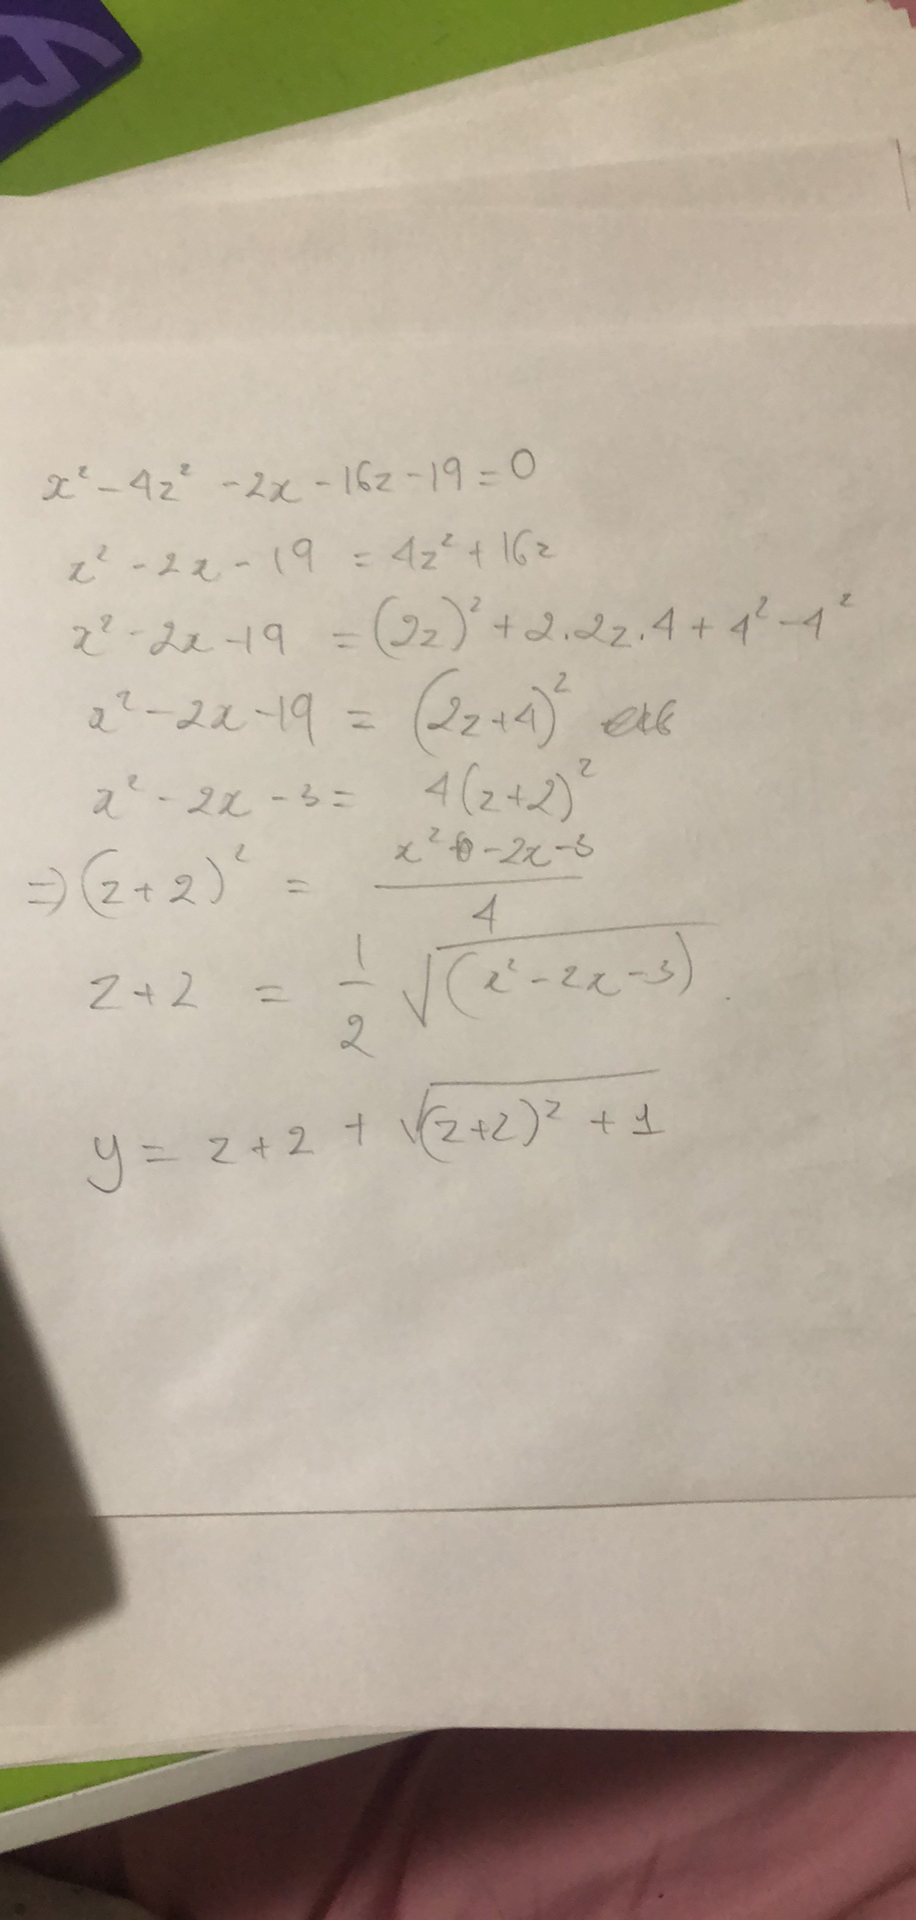 x² - 4z² - 2x - 16z - 19 = 0
x² - 2x - 19 = 4z² + 16z
x² - 2x - 19 = (2z)² + 2.2z.4 + 4² - 4²
x² - 2x - 19 = (2z+4)²
x² - 2x - 3 = 4(z+2)²
⇒ (z+2)² = (x² - 2x - 3)/4
z + 2 = 1/2 √(x² - 2x - 3).
y = z + 2 + √(z+2)² + 1